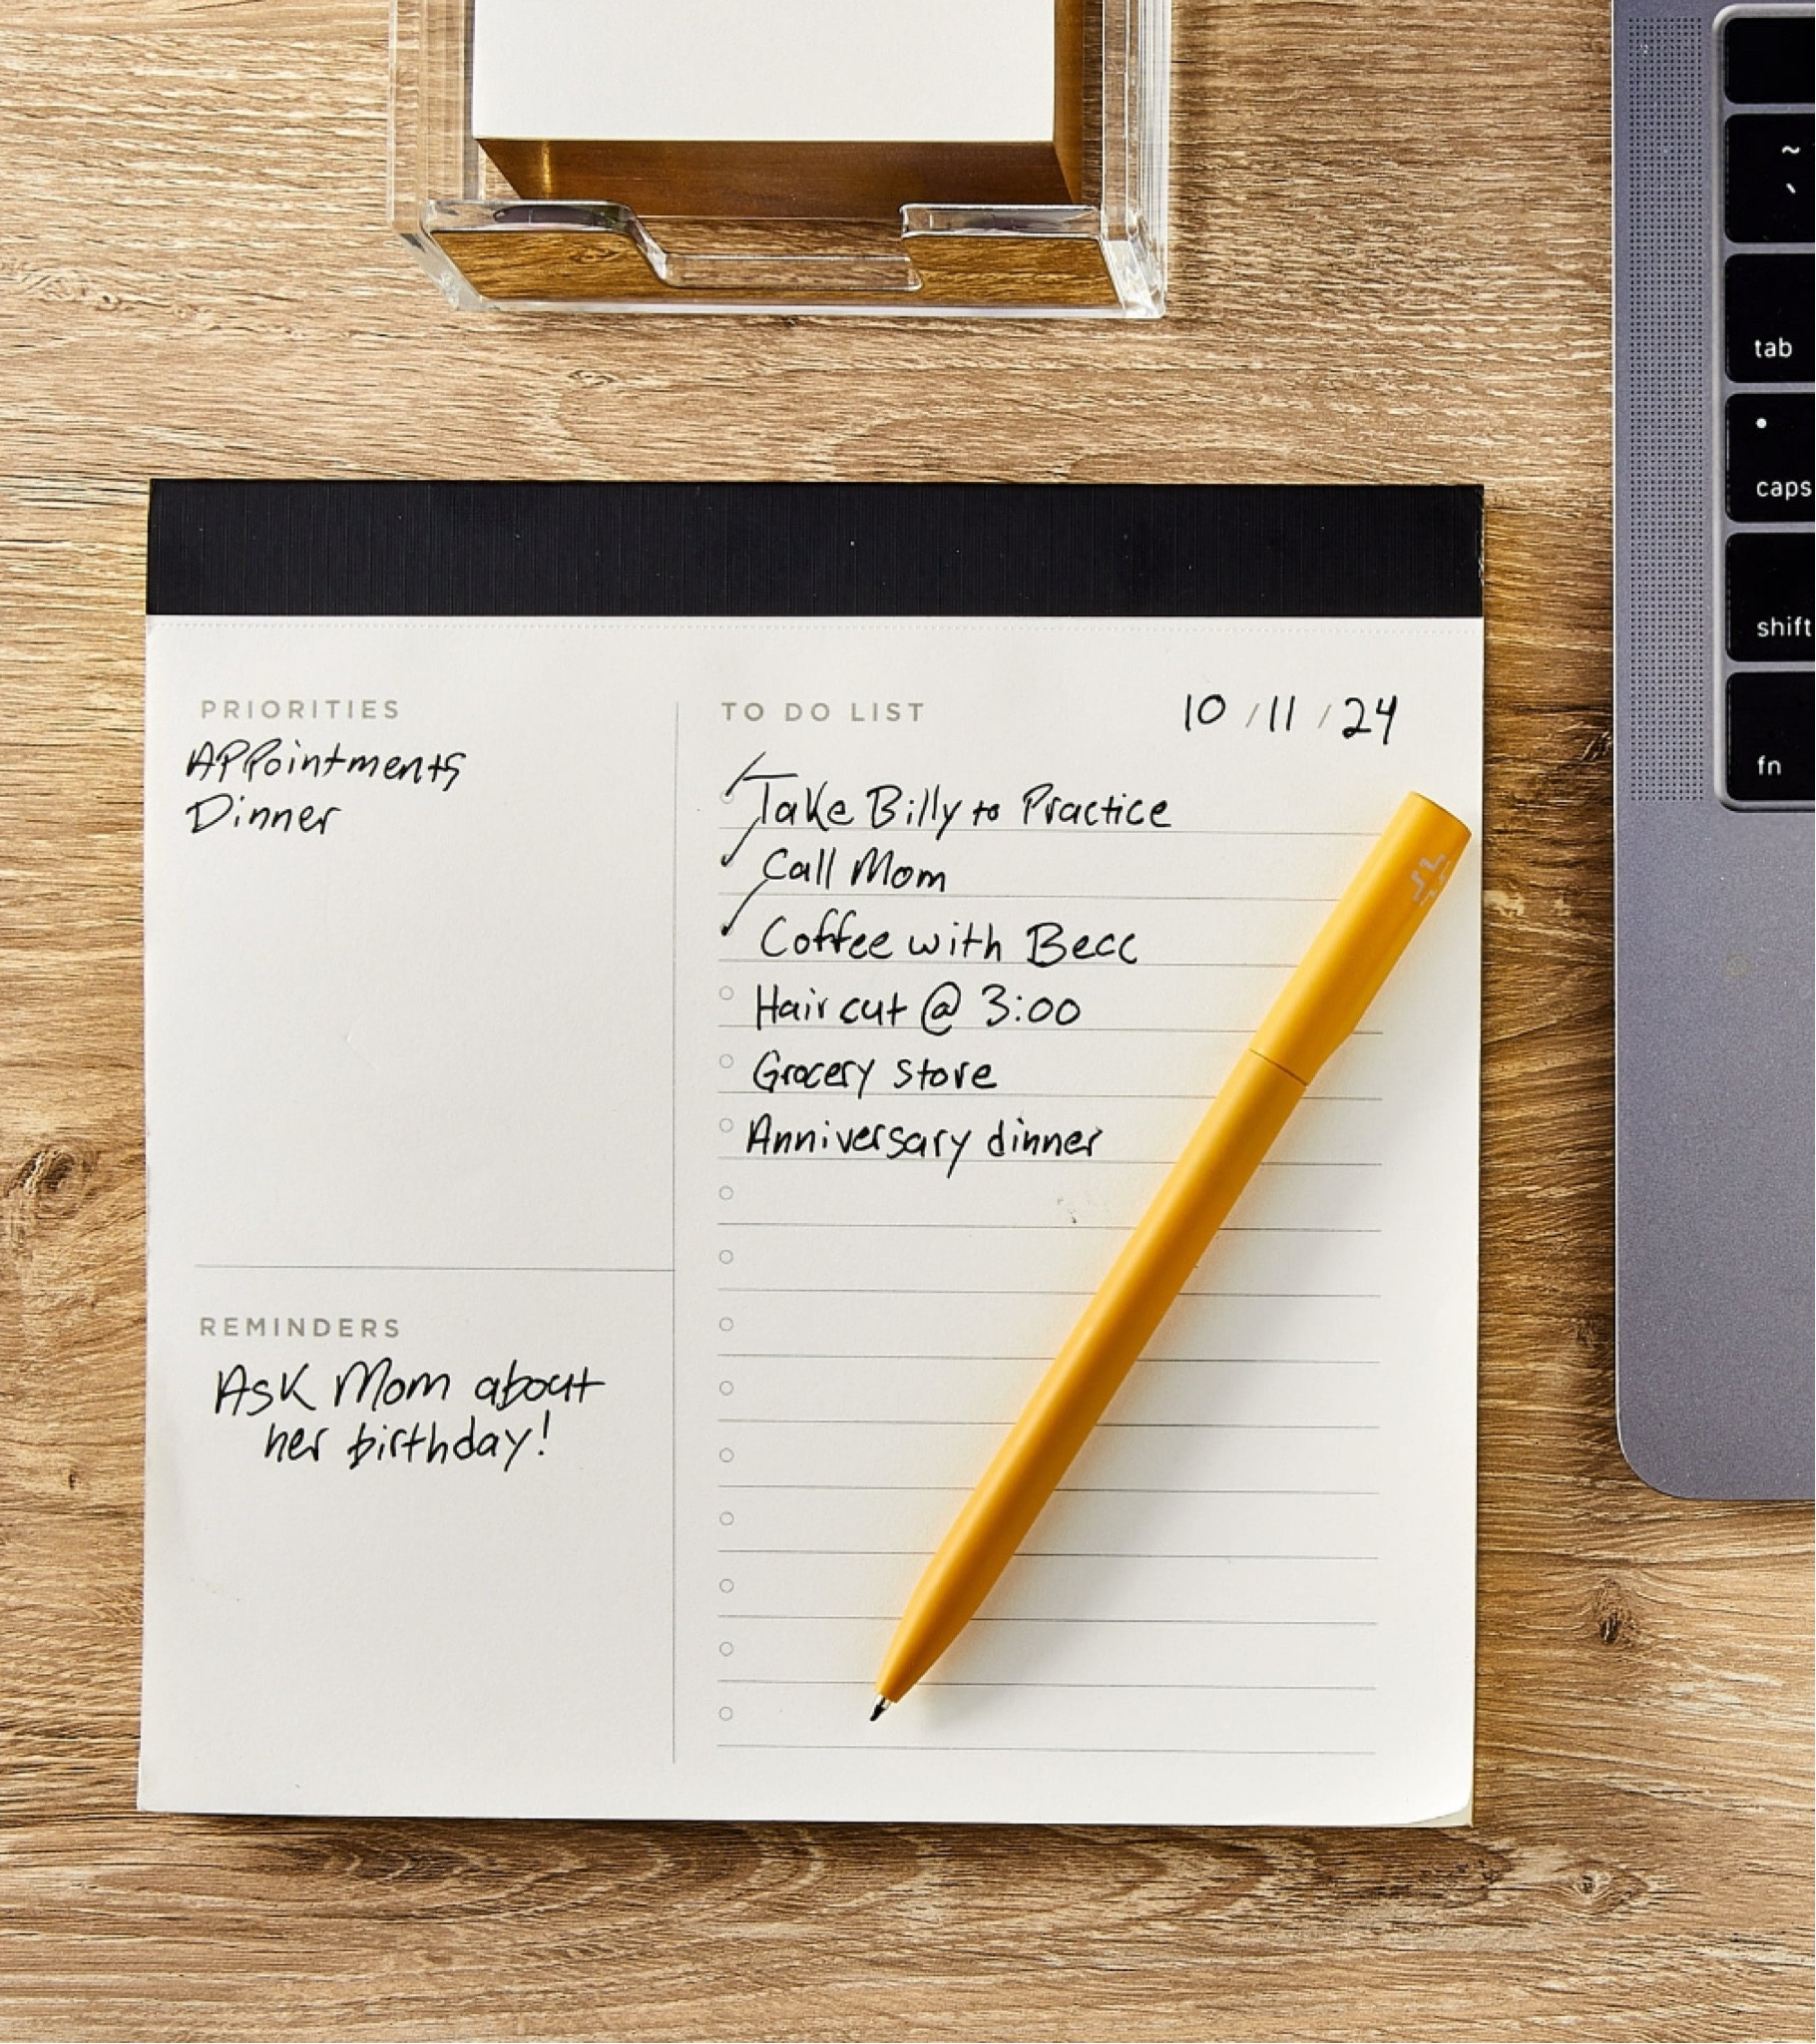 ~
`
tab
caps
shift
fn
PRIORITIES
Appointments
Dinner
TO DO LIST
10 / 11 / 24
Take Billy to Practice
Call Mom
Coffee with Becc
Hair cut @ 3:00
Grocery store
Anniversary dinner
REMINDERS
Ask Mom about
her birthday!